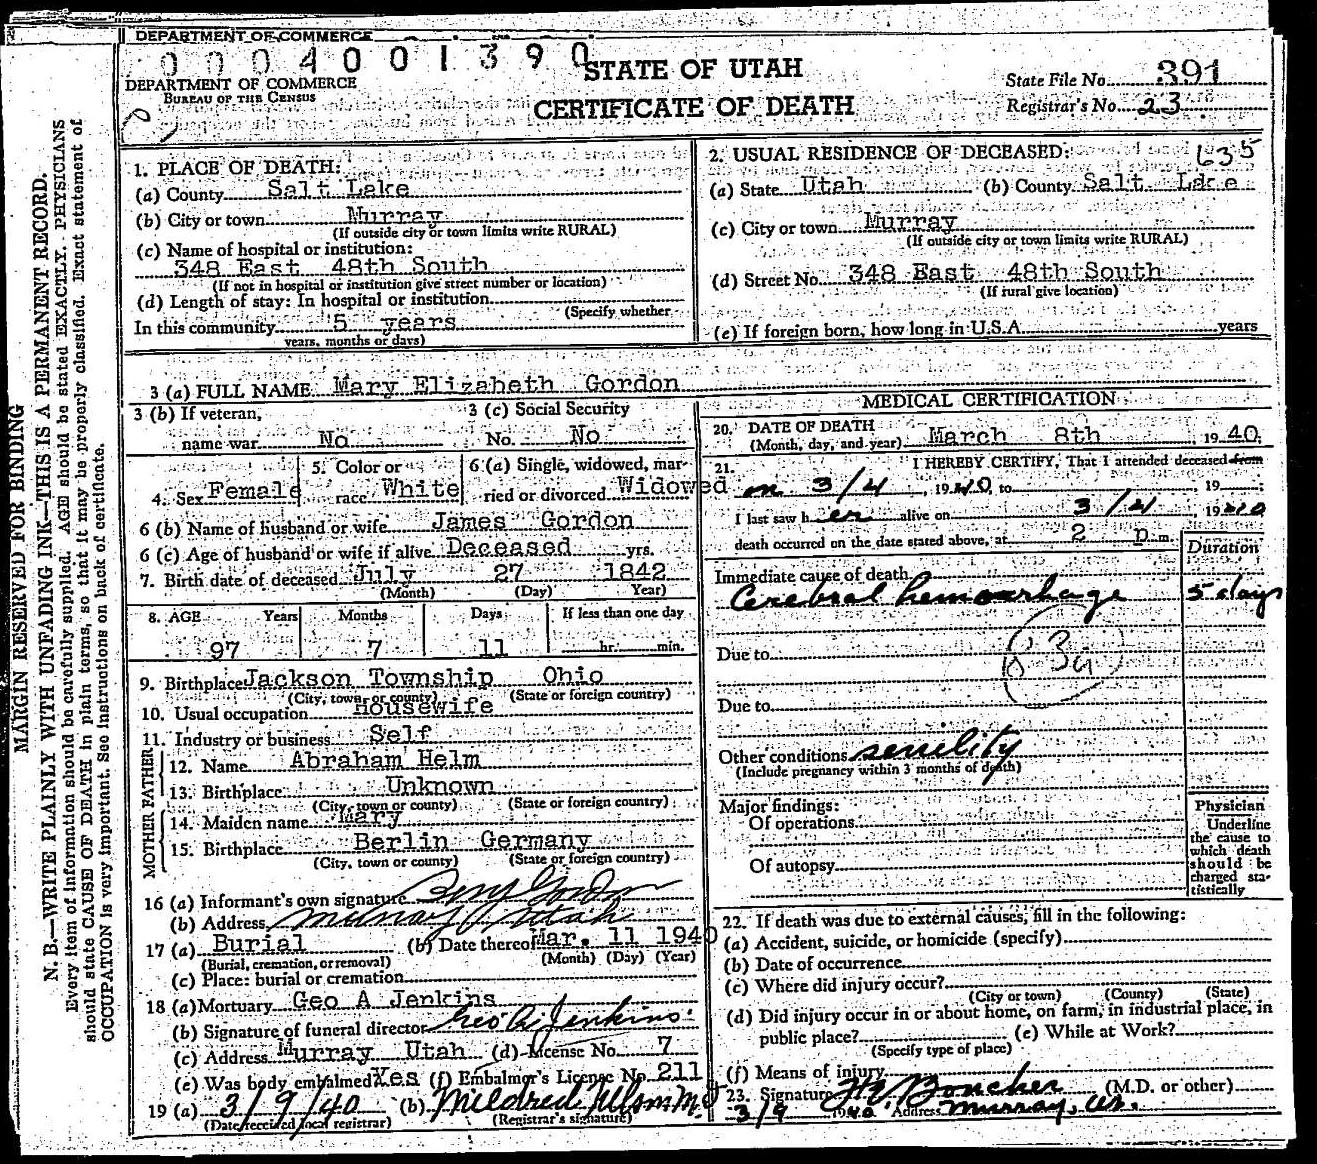 DEPARTMENT OF COMMERCE
0004001390
DEPARTMENT OF COMMERCE
BUREAU OF THE CENSUS
STATE OF UTAH
CERTIFICATE OF DEATH
State File No. 391
Registrar's No. 23
MARGIN RESERVED FOR BINDING
N. B.—WRITE PLAINLY WITH UNFADING INK—THIS IS A PERMANENT RECORD.
Every item of information should be carefully supplied. AGE should be stated EXACTLY. PHYSICIANS
should state CAUSE OF DEATH in plain terms, so that it may be properly classified. Exact statement of
OCCUPATION is very important. See instructions on back of certificate.
1. PLACE OF DEATH:
(a) County Salt Lake
(b) City or town Murray
(If outside city or town limits write RURAL)
(c) Name of hospital or institution:
348 East 48th South
(If not in hospital or institution give street number or location)
(d) Length of stay: In hospital or institution
(Specify whether
In this community 5 years
years, months or days)
2. USUAL RESIDENCE OF DECEASED: 635
(a) State Utah (b) County Salt Lake
(c) City or town Murray
(If outside city or town limits write RURAL)
(d) Street No. 348 East 48th South
(If rural give location)
(e) If foreign born, how long in U.S.A. years
3 (a) FULL NAME Mary Elizabeth Gordon
3 (b) If veteran, 3 (c) Social Security
name war No No. No
4. Sex Female 5. Color or race White 6 (a) Single, widowed, married or divorced Widowed
6 (b) Name of husband or wife James Gordon
6 (c) Age of husband or wife if alive Deceased yrs.
7. Birth date of deceased July 27 1842
(Month) (Day) Year)
8. AGE Years Months Days If less than one day
97 7 11 hr. min.
9. Birthplace Jackson Township Ohio
(City, town or county) (State or foreign country)
10. Usual occupation Housewife
11. Industry or business Self
FATHER
12. Name Abraham Helm
13. Birthplace Unknown
(City, town or county) (State or foreign country)
MOTHER
14. Maiden name Mary
15. Birthplace Berlin Germany
(City, town or county) (State or foreign country)
16 (a) Informant's own signature Benj Gordon
(b) Address Murray Utah
17 (a) Burial (b) Date thereof Mar. 11 1940
(Burial, cremation, or removal) (Month) (Day) (Year)
(c) Place: burial or cremation
18 (a) Mortuary Geo A Jenkins
(b) Signature of funeral director Geo A. Jenkins
(c) Address Murray Utah (d) License No. 7
(e) Was body embalmed Yes (f) Embalmer's License No. 211
19 (a) 3/9/40 (b) Mildred
(Date received local registrar) (Registrar's signature)
MEDICAL CERTIFICATION
20. DATE OF DEATH
(Month, day, and year) March 8th, 1940.
21. I HEREBY CERTIFY, That I attended deceased from
on 3/4, 1940, to , 19 ;
I last saw her alive on 3/4, 1940
death occurred on the date stated above, at 2 p m.
Duration
Immediate cause of death
Cerebral hemorrhage 5 days
Due to 83a
Due to
Other conditions senility
(Include pregnancy within 3 months of death)
Major findings:
Of operations
Of autopsy
Physician
Underline
the cause to
which death
should be
charged sta-
tistically
22. If death was due to external causes, fill in the following:
(a) Accident, suicide, or homicide (specify)
(b) Date of occurrence
(c) Where did injury occur?
(City or town) (County) (State)
(d) Did injury occur in or about home, on farm, in industrial place, in
public place? (e) While at Work?
(Specify type of place)
(f) Means of injury
23. Signature Boucher (M.D. or other)
3/9 1940 Address Murray, Ut.